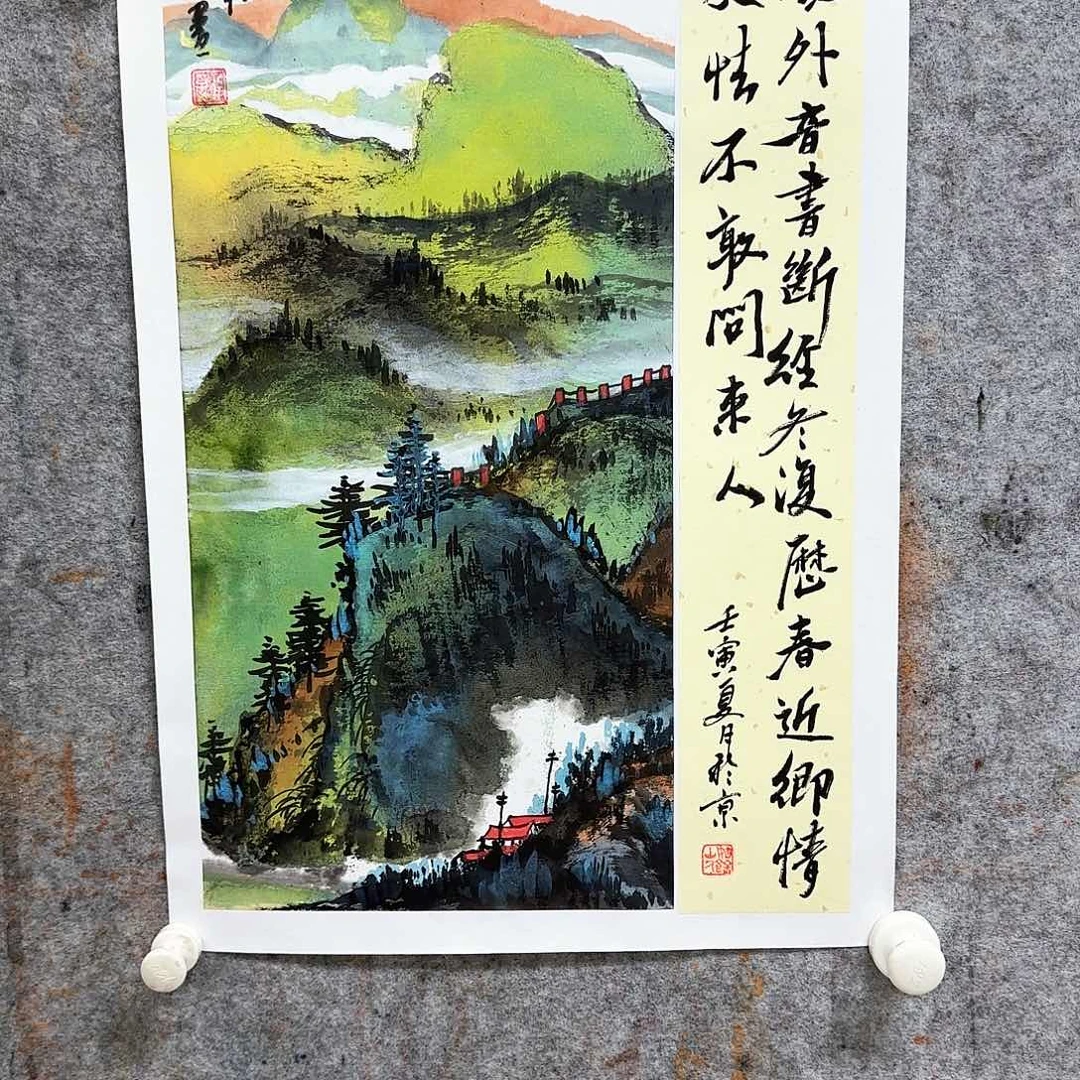 外音書斷經冬復歷春近鄉情
怯不敢問來人
壬寅夏日於京
畫